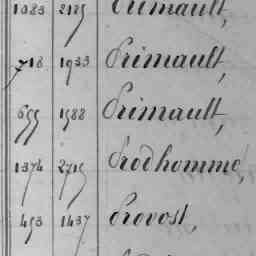 1083 2125 Primault,
718 1933 Primault,
699 1988 Primault,
1374 2719 Prodhomme,
493 1437 Provost,